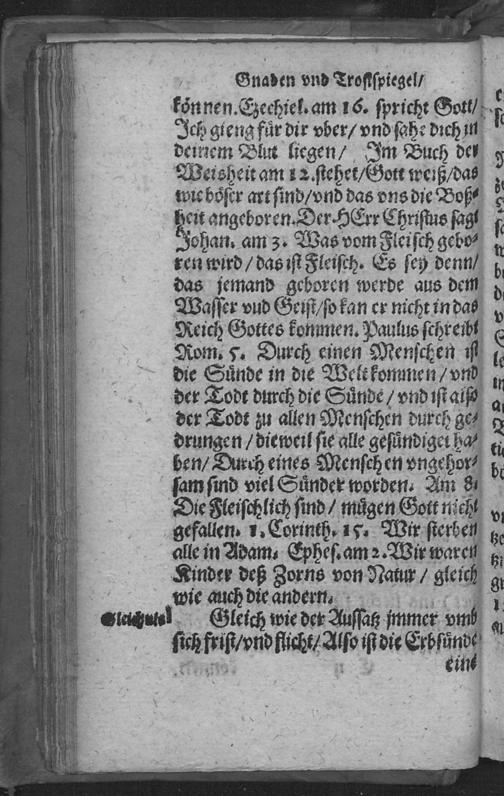 Gnaden vnd Trostspiegel/
können. Ezechiel. am 16. spricht Gott/
Ich gieng für dir vber/ vnd sahe dich in
deinem Blut liegen/ Im Buch der
Weisheit am 12. stehet/ Gott weiß/ das
wie böser art sind/ vnd das vns die Boß-
heit angeboren. Der HErr Christus sagt
Johan. am 3. Was vom Fleisch gebo-
ren wird/ das ist Fleisch. Es sey denn/
das jemand geboren werde aus dem
Wasser vnd Geist/ so kan er nicht in das
Reich Gottes kommen. Paulus schreibt
Rom. 5. Durch einen Menschen ist
die Sünde in die Welt kommen/ vnd
der Todt durch die Sünde/ vnd ist also
der Todt zu allen Menschen durch ge-
drungen/ dieweil sie alle gesündiget ha-
ben/ Durch eines Menschen vngehor-
sam sind viel Sünder worden. Am 8.
Die Fleischlich sind/ mügen Gott nicht
gefallen. 1. Corinth. 15. Wir sterben
alle in Adam. Ephes. am 2. Wir waren
Kinder deß Zorns von Natur/ gleich
wie auch die andern.
Gleich wie der Aussatz jmmer vmb
sich frist/ vnd flicht/ Also ist die Erbsünde
eine